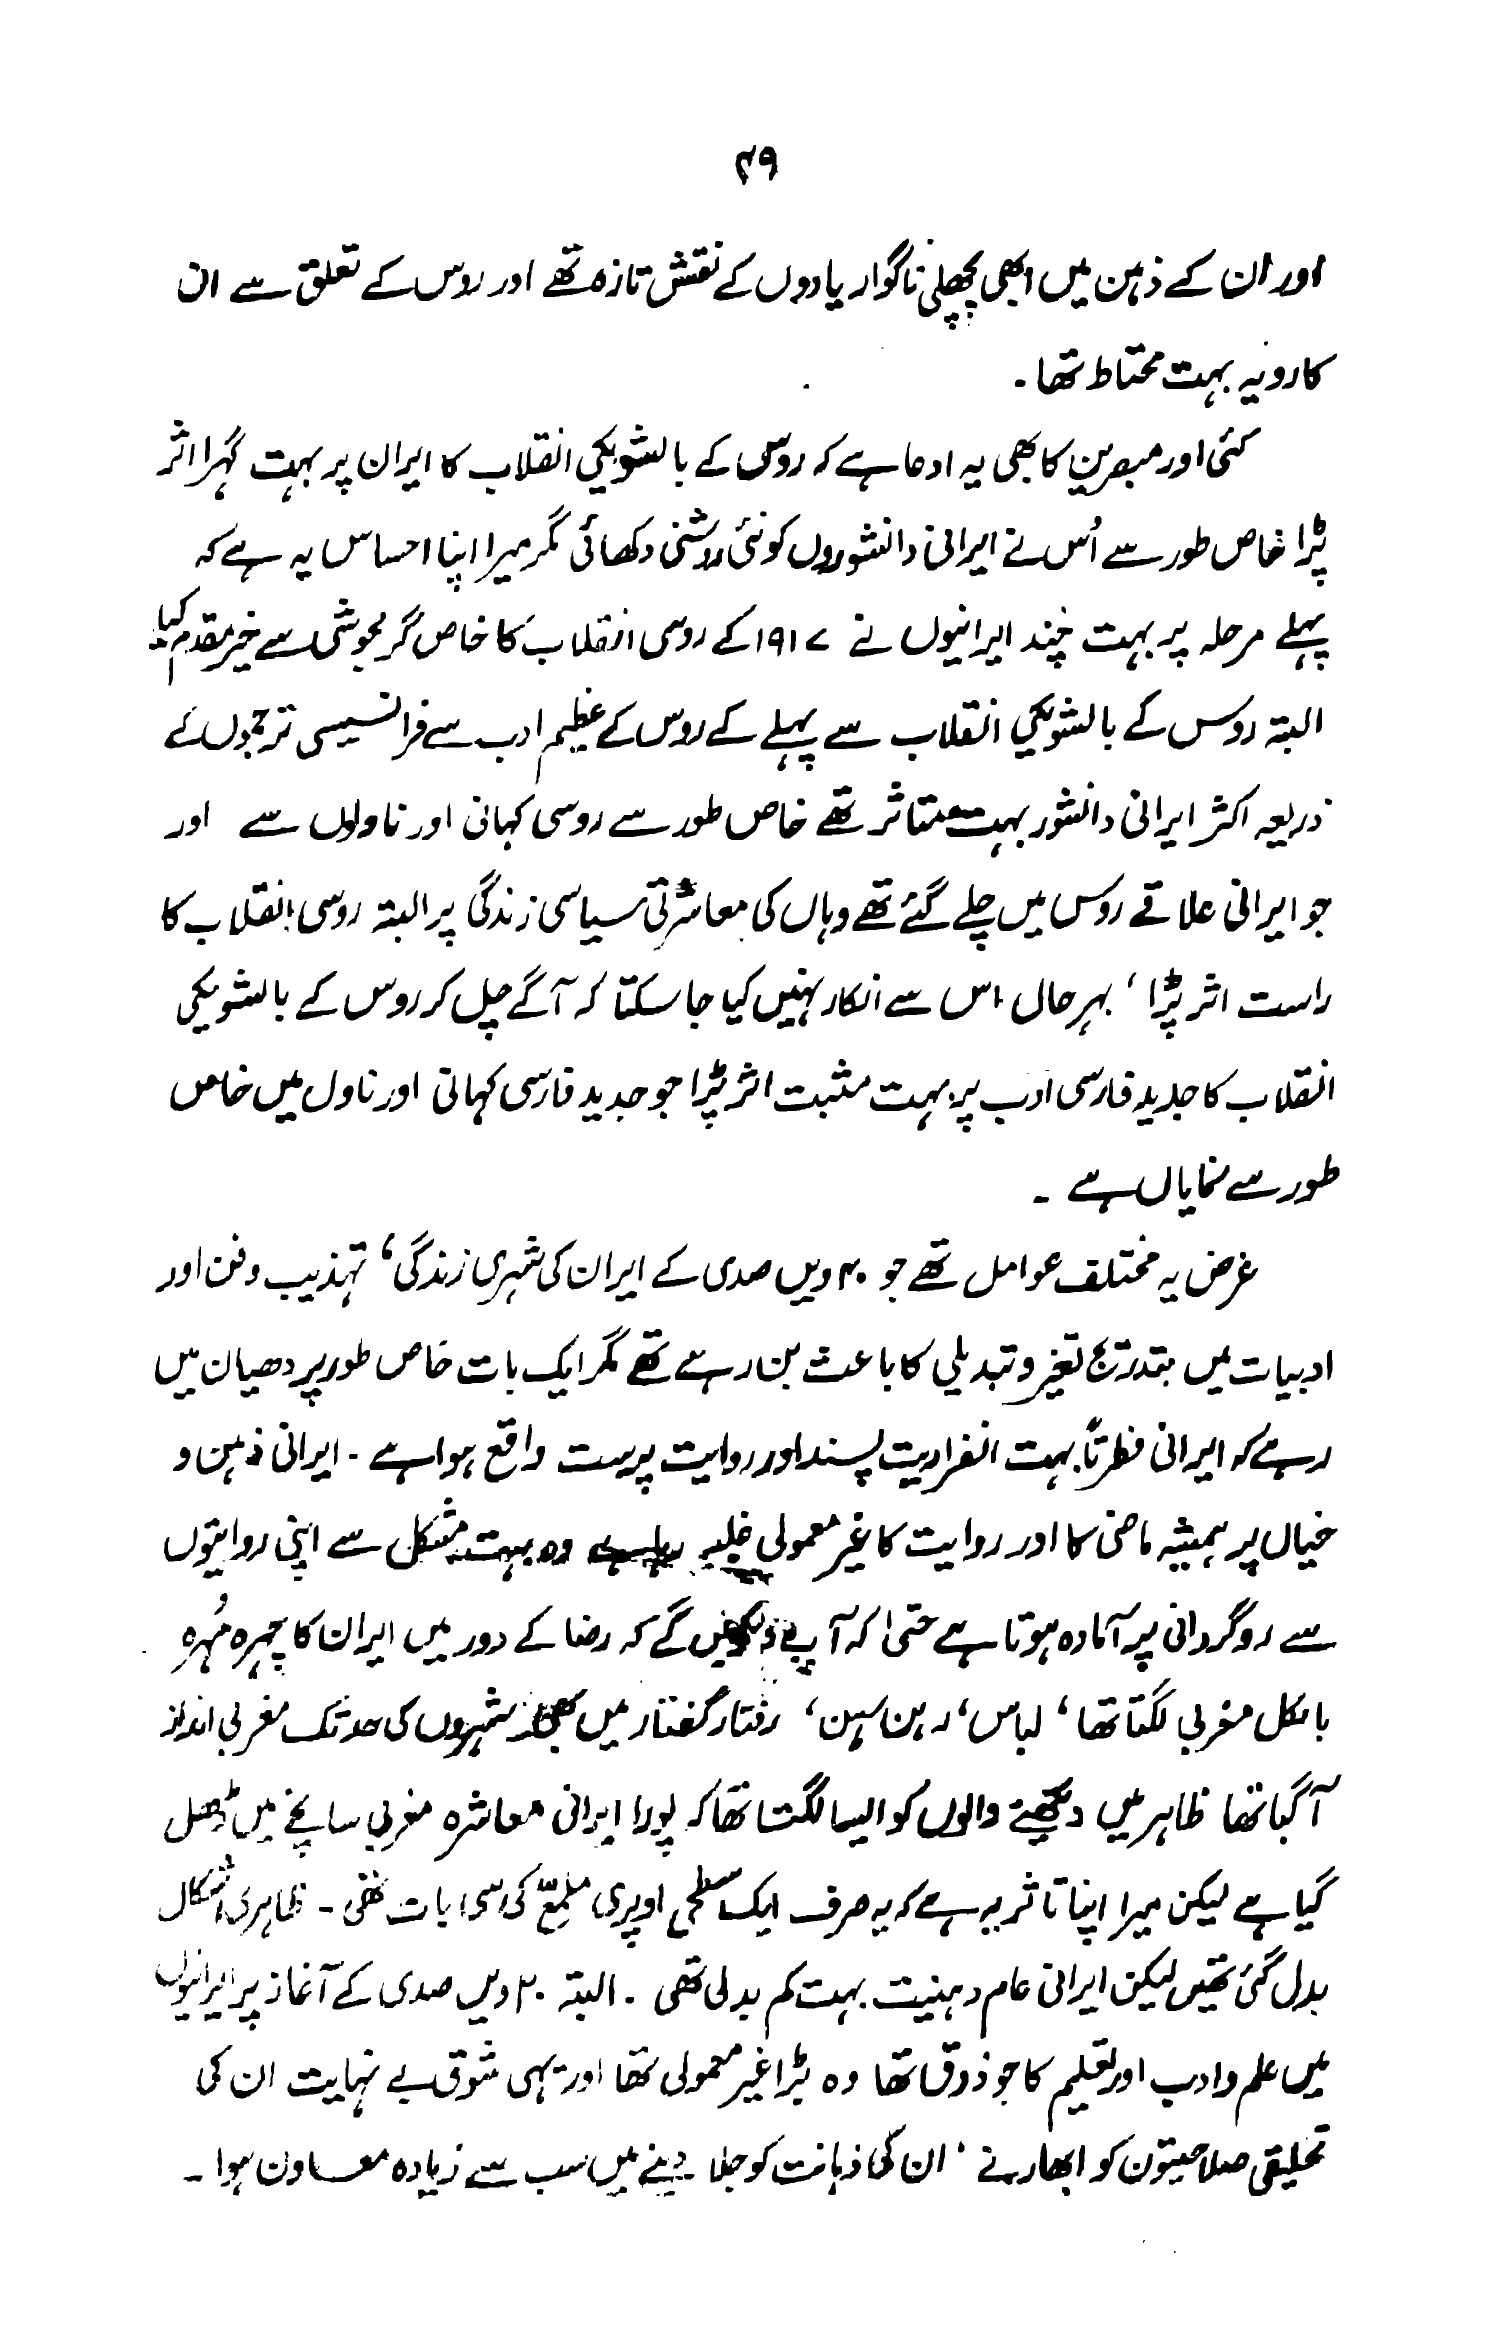 ۴۹
اور ان کے ذہن میں ابھی پچھلی ناگوار یادوں کے نقش تازہ تھے اور روس کے تعلق سے ان
کا رویہ بہت محتاط تھا ۔
کئی اور مبصرین کا بھی یہ ادعا ہے کہ روس کے بالشویکی انقلاب کا ایران پر بہت گہرا اثر
پڑا خاص طور سے اُس نے ایرانی دانشوروں کو نئی روشنی دکھائی مگر میرا اپنا احساس یہ ہے کہ
پہلے مرحلہ پر بہت چند ایرانیوں نے ۱۹۱۷ کے روسی انقلاب کا خاص گرمجوشی سے خیر مقدم کیا۔
البتہ روس کے بالشویکی انقلاب سے پہلے کے روس کے عظیم ادب سے فرانسیسی ترجموں کے
ذریعہ اکثر ایرانی دانشور بہت متاثر تھے خاص طور سے روسی کہانی اور ناولوں سے اور
جو ایرانی علاقے روس میں چلے گئے تھے وہاں کی معاشرتی سیاسی زندگی پر البتہ روسی انقلاب کا
راست اثر پڑا ‘ بہرحال اس سے انکار نہیں کیا جا سکتا کہ آگے چل کر روس کے بالشویکی
انقلاب کا جدید فارسی ادب پر بہت مثبت اثر پڑا جو جدید فارسی کہانی اور ناول میں خاص
طور سے نمایاں ہے ۔
غرض یہ مختلف عوامل تھے جو ۲۰ ویں صدی کے ایران کی شہری زندگی ‘ تہذیب و فن اور
ادبیات میں بتدریج تغیر و تبدیلی کا باعث بن رہے تھے مگر ایک بات خاص طور پر دھیان میں
رہے کہ ایرانی فطرتاً بہت انفرادیت پسند اور روایت پرست واقع ہوا ہے ۔ ایرانی ذہن و
خیال پر ہمیشہ ماضی کا اور روایت کا غیر معمولی غلبہ رہا ہے وہ بہت مشکل سے اپنی روایتوں
سے روگردانی پر آمادہ ہوتا ہے حتیٰ کہ آپ دیکھیں گے کہ رضا کے دور میں ایران کا چہرہ مُہرہ
بالکل مغربی لگتا تھا ‘ لباس ‘ رہن سہن ‘ رفتار گفتار میں بھی شہروں کی حد تک مغربی انداز
آگیا تھا ظاہر میں دیکھنے والوں کو ایسا لگتا تھا کہ پورا ایرانی معاشرہ مغربی سانچے میں ڈھل
گیا ہے لیکن میرا اپنا تاثر یہ ہے کہ یہ صرف ایک سطحی اوپری ملمعّ کی سی بات تھی ۔ ظاہری اشکال
بدل گئی تھیں لیکن ایرانی عام ذہنیت بہت کم بدلی تھی ۔ البتہ ۲۰ ویں صدی کے آغاز پر ایرانیوں
میں علم و ادب اور تعلیم کا جو ذوق تھا وہ بڑا غیر معمولی تھا اور یہی شوق بے نہایت ان کی
تخلیقی صلاحیتوں کو ابھارنے ‘ ان کی ذہانت کو جلا دینے میں سب سے زیادہ معاون ہوا ۔